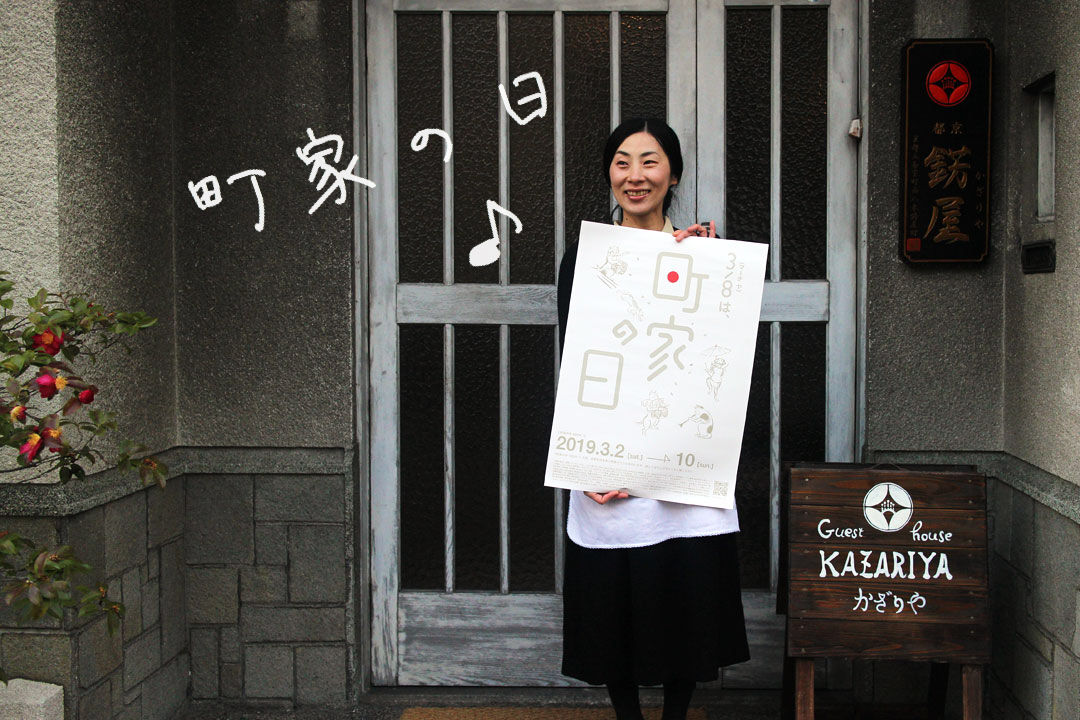 町家の日
3/8は、
町家の日
2019.3.2 [sat.] → 10 [sun.]
京都
錺屋
かざりや
Guest house
KAZARIYA
かざりや